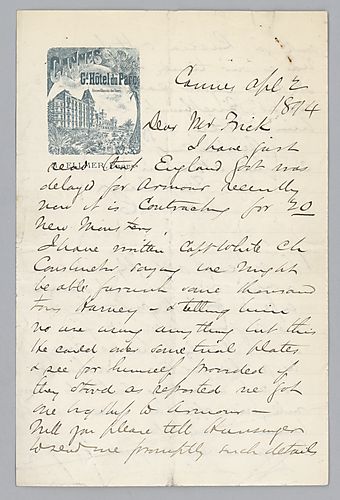 CANNES
Gd. Hôtel du Parc
ELLMER,
Cannes Apl 2
1894
Dear Mr Frick
I have just
read that England Govt was
delayed for Armour recently
now it is Contracting for 70
New Monsters,
I have written Capt White Ch
Constructor saying we might
be able furnish some thousand
tons Harvey — & telling him
we are using anything but this
He could order some trial plates
& see for himself, provided if
they stood as reported we got
one big ship to Armour —
Will you please tell Hunsiker
to send me promptly such details